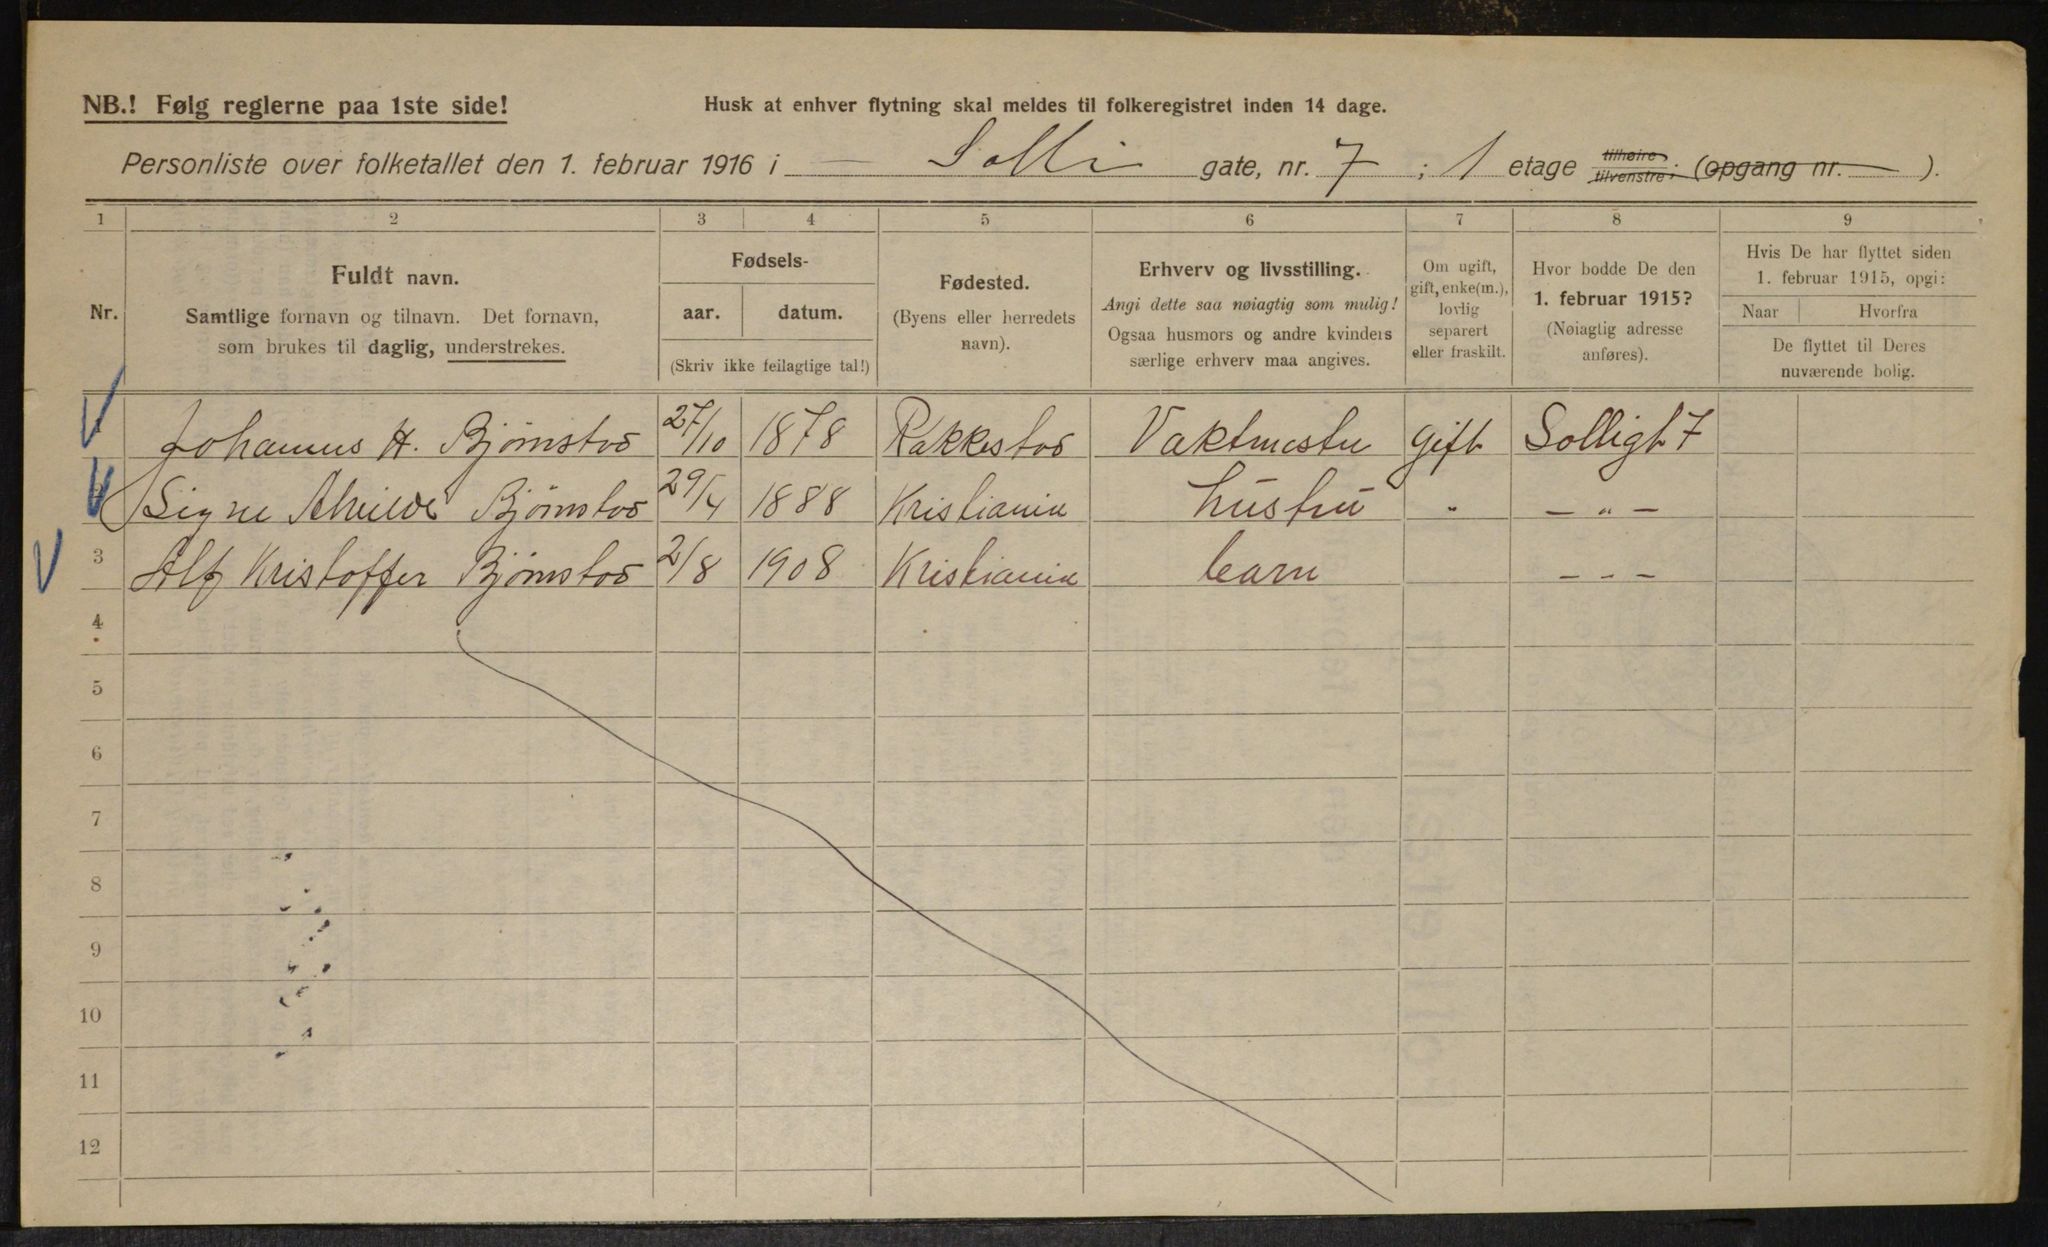 NB.! Følg reglerne paa 1ste side!
Husk at enhver flytning skal meldes til folkeregistret inden 14 dage.
Personliste over folketallet den 1. februar 1916 i — Solli gate, nr. 7 ; 1 etage tilhøire tilvenstre; (opgang nr. — ).
1 2 3 4 5 6 7 8 9
Nr.
Fuldt navn.
Samtlige fornavn og tilnavn. Det fornavn,
som brukes til daglig, understrekes.
Fødsels-
aar. datum.
(Skriv ikke feilagtige tal!)
Fødested.
(Byens eller herredets
navn).
Erhverv og livsstilling.
Angi dette saa nøiagtig som mulig!
Ogsaa husmors og andre kvinders
særlige erhverv maa angives.
Om ugift,
gift, enke(m.),
lovlig
separert
eller fraskilt.
Hvor bodde De den
1. februar 1915?
(Nøiagtig adresse
anføres).
Hvis De har flyttet siden
1. februar 1915, opgi:
Naar Hvorfra
De flyttet til Deres
nuværende bolig.
Johannes H. Bjørnstad 27/10 1878 Rakkestad Vaktmester gift Solligt 7
Signe Bjørnstad 29/4 1888 Kristiania hustru " — " —
3 Alf Kristoffer Bjørnstad 2/8 1908 Kristiania barn — - —
4
5
6
7
8
9
10
11
12